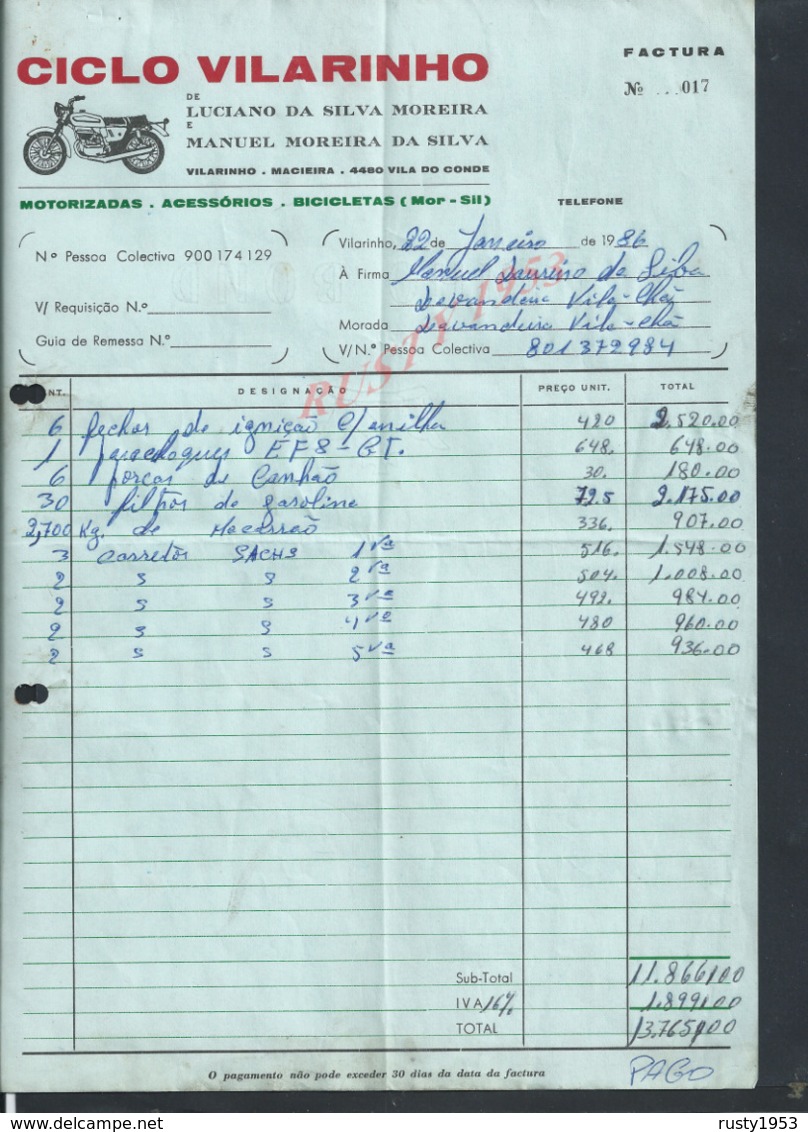 FACTURA
CICLO VILARINHO
Nº ...017
DE
LUCIANO DA SILVA MOREIRA
E
MANUEL MOREIRA DA SILVA
VILARINHO . MACIEIRA . 4480 VILA DO CONDE
MOTORIZADAS . ACESSÓRIOS . BICICLETAS (Mor - Sil) TELEFONE
Nº Pessoa Colectiva 900174129
V/ Requisição N.º
Guia de Remessa N.º
Vilarinho, 22 de Janeiro de 1986
À Firma Manuel Laurino da Silva
Devandeira Vila-Chã
Morada Devandeira Vila-Chã
V/ N.º Pessoa Colectiva 801372984
RUSTY 1953
NT. DESIGNAÇÃO PREÇO UNIT. TOTAL
6 fechos de ignição C/anilha 420 2.520.00
1 EF8-GT. 648. 648.00
6 porcas de Canhão 30. 180.00
30 filtros de gasolina 72.5 2.175.00
2,700 Kg. de 336. 907.00
3 Carretos SACHS 1ª 516. 1.548.00
2 " " 2ª 504. 1.008.00
2 " " 3ª 492. 984.00
2 " " 4ª 480 960.00
2 " " 5ª 468 936.00
Sub-Total 11.866,00
IVA 16% 1.899,00
TOTAL 13.765,00
O pagamento não pode exceder 30 dias da data da factura
PAGO
rusty1953